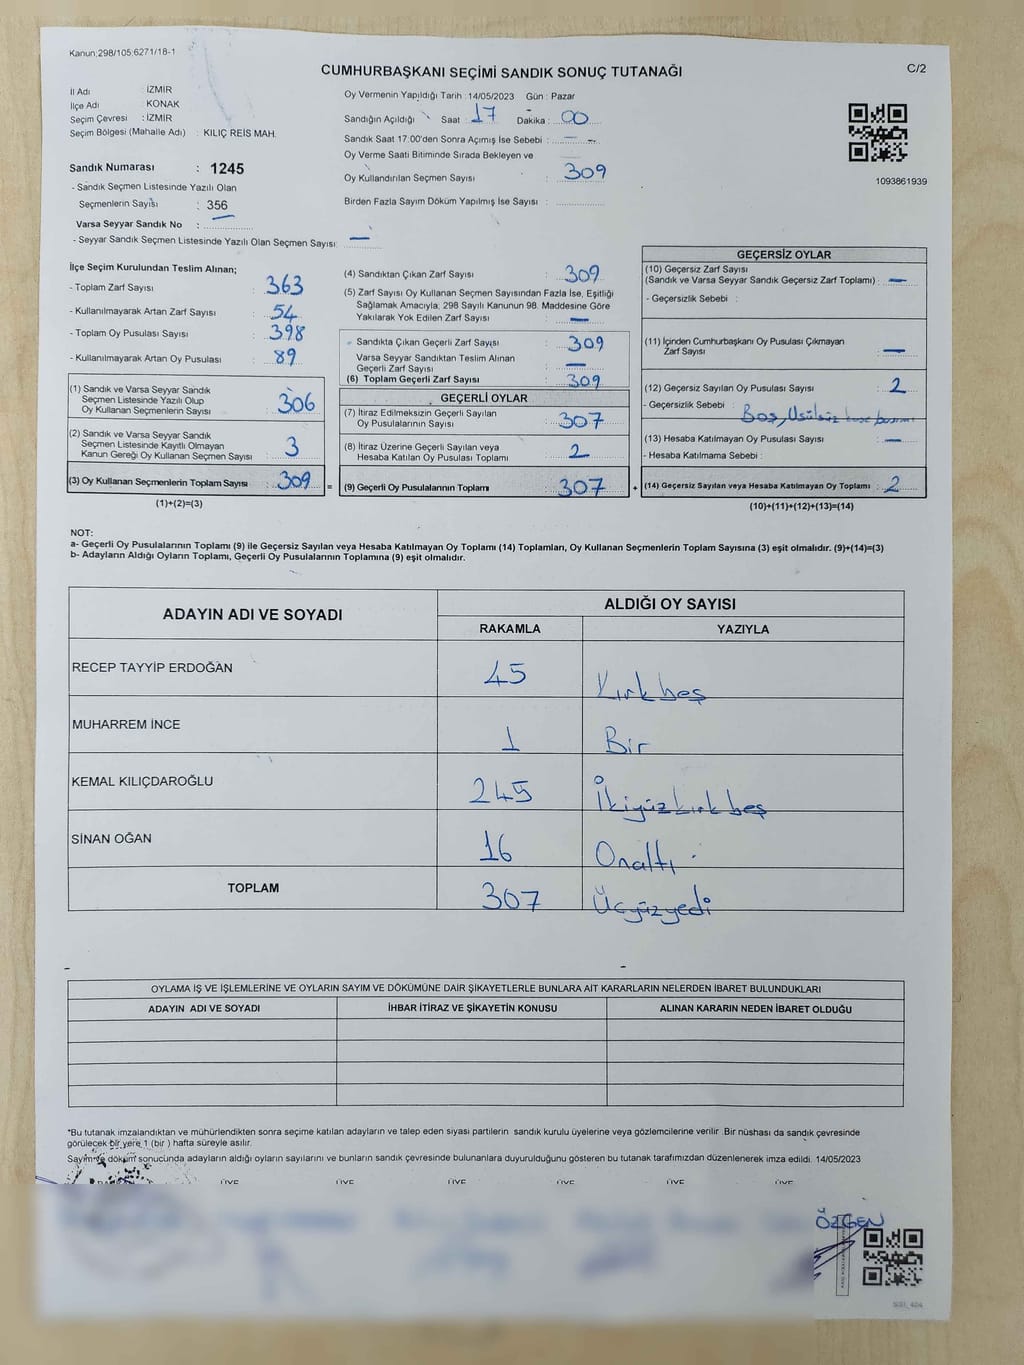 Kanun;298/105;6271/18-1
CUMHURBAŞKANI SEÇİMİ SANDIK SONUÇ TUTANAĞI
C/2
İl Adı : İZMİR
İlçe Adı : KONAK
Seçim Çevresi : İZMİR
Seçim Bölgesi (Mahalle Adı) : KILIÇ REİS MAH.
Sandık Numarası : 1245
- Sandık Seçmen Listesinde Yazılı Olan
Seçmenlerin Sayısı : 356
Varsa Seyyar Sandık No : —
- Seyyar Sandık Seçmen Listesinde Yazılı Olan Seçmen Sayısı: —
Oy Vermenin Yapıldığı Tarih : 14/05/2023 Gün : Pazar
Sandığın Açıldığı Saat : 17 Dakika : 00
Sandık Saat 17:00'den Sonra Açımış İse Sebebi : — —
Oy Verme Saati Bitiminde Sırada Bekleyen ve
Oy Kullandırılan Seçmen Sayısı : 309
Birden Fazla Sayım Döküm Yapılmış İse Sayısı :
1093861939
İlçe Seçim Kurulundan Teslim Alınan;
- Toplam Zarf Sayısı : 363
- Kullanılmayarak Artan Zarf Sayısı : 54
- Toplam Oy Pusulası Sayısı : 398
- Kullanılmayarak Artan Oy Pusulası : 89
(1) Sandık ve Varsa Seyyar Sandık
Seçmen Listesinde Yazılı Olup
Oy Kullanan Seçmenlerin Sayısı : 306
(2) Sandık ve Varsa Seyyar Sandık
Seçmen Listesinde Kayıtlı Olmayan
Kanun Gereği Oy Kullanan Seçmen Sayısı : 3
(3) Oy Kullanan Seçmenlerin Toplam Sayısı : 309
(1)+(2)=(3)
=
(4) Sandıktan Çıkan Zarf Sayısı : 309
(5) Zarf Sayısı Oy Kullanan Seçmen Sayısından Fazla İse, Eşitliği
Sağlamak Amacıyla; 298 Sayılı Kanunun 98. Maddesine Göre
Yakılarak Yok Edilen Zarf Sayısı : —
Sandıkta Çıkan Geçerli Zarf Sayısı : 309
Varsa Seyyar Sandıktan Teslim Alınan
Geçerli Zarf Sayısı : —
(6) Toplam Geçerli Zarf Sayısı : 309
GEÇERLİ OYLAR
(7) İtiraz Edilmeksizin Geçerli Sayılan
Oy Pusulalarının Sayısı : 307
(8) İtiraz Üzerine Geçerli Sayılan veya
Hesaba Katılan Oy Pusulası Toplamı : 2
(9) Geçerli Oy Pusulalarının Toplamı : 307
+
GEÇERSİZ OYLAR
(10) Geçersiz Zarf Sayısı
(Sandık ve Varsa Seyyar Sandık Geçersiz Zarf Toplamı) : —
- Geçersizlik Sebebi :
(11) İçinden Cumhurbaşkanı Oy Pusulası Çıkmayan
Zarf Sayısı : —
(12) Geçersiz Sayılan Oy Pusulası Sayısı : 2
- Geçersizlik Sebebi : Boş, Usülsüz
(13) Hesaba Katılmayan Oy Pusulası Sayısı : —
- Hesaba Katılmama Sebebi :
(14) Geçersiz Sayılan veya Hesaba Katılmayan Oy Toplamı : 2
(10)+(11)+(12)+(13)=(14)
NOT:
a- Geçerli Oy Pusulalarının Toplamı (9) ile Geçersiz Sayılan veya Hesaba Katılmayan Oy Toplamı (14) Toplamları, Oy Kullanan Seçmenlerin Toplam Sayısına (3) eşit olmalıdır. (9)+(14)=(3)
b- Adayların Aldığı Oyların Toplamı, Geçerli Oy Pusulalarının Toplamına (9) eşit olmalıdır.
ADAYIN ADI VE SOYADI
ALDIĞI OY SAYISI
RAKAMLA YAZIYLA
RECEP TAYYİP ERDOĞAN 45 Kırkbeş
MUHARREM İNCE 1 Bir
KEMAL KILIÇDAROĞLU 245 İkiyüzkırkbeş
SİNAN OĞAN 16 Onaltı
TOPLAM 307 Üçyüzyedi
OYLAMA İŞ VE İŞLEMLERİNE VE OYLARIN SAYIM VE DÖKÜMÜNE DAİR ŞİKAYETLERLE BUNLARA AİT KARARLARIN NELERDEN İBARET BULUNDUKLARI
ADAYIN ADI VE SOYADI İHBAR İTİRAZ VE ŞİKAYETİN KONUSU ALINAN KARARIN NEDEN İBARET OLDUĞU
*Bu tutanak imzalandıktan ve mühürlendikten sonra seçime katılan adayların ve talep eden siyasi partilerin sandık kurulu üyelerine veya gözlemcilerine verilir. Bir nüshası da sandık çevresinde
görülecek bir yere 1 (bir ) hafta süreyle asılır.
Sayım ve döküm sonucunda adayların aldığı oyların sayılarını ve bunların sandık çevresinde bulunanlara duyurulduğunu gösteren bu tutanak tarafımızdan düzenlenerek imza edildi. 14/05/2023
ÜYE ÜYE ÜYE ÜYE ÜYE ÜYE
ÖZGEN